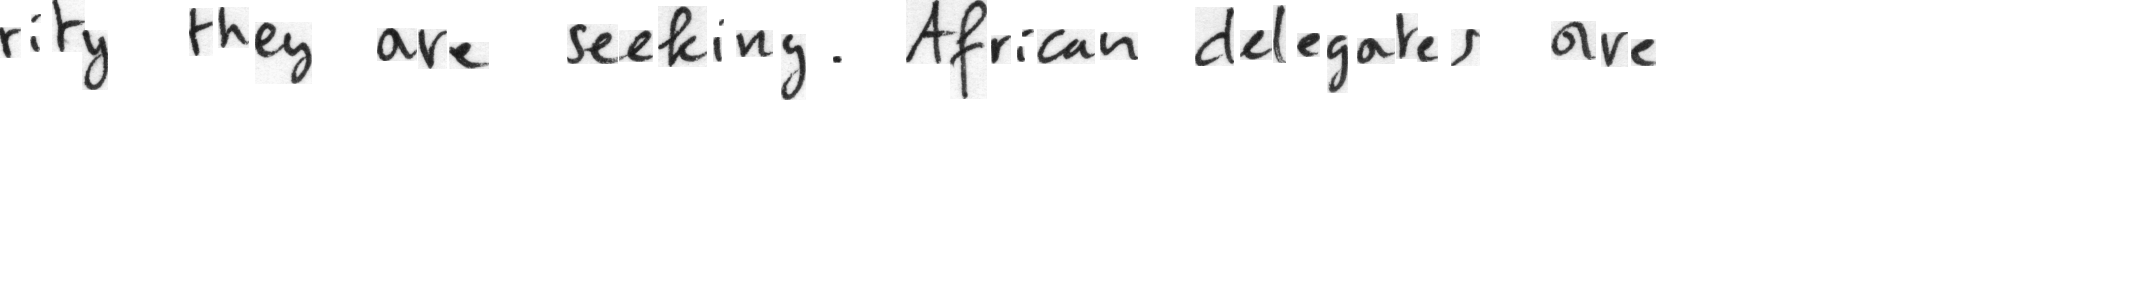 rity they are seeking. African delegates are